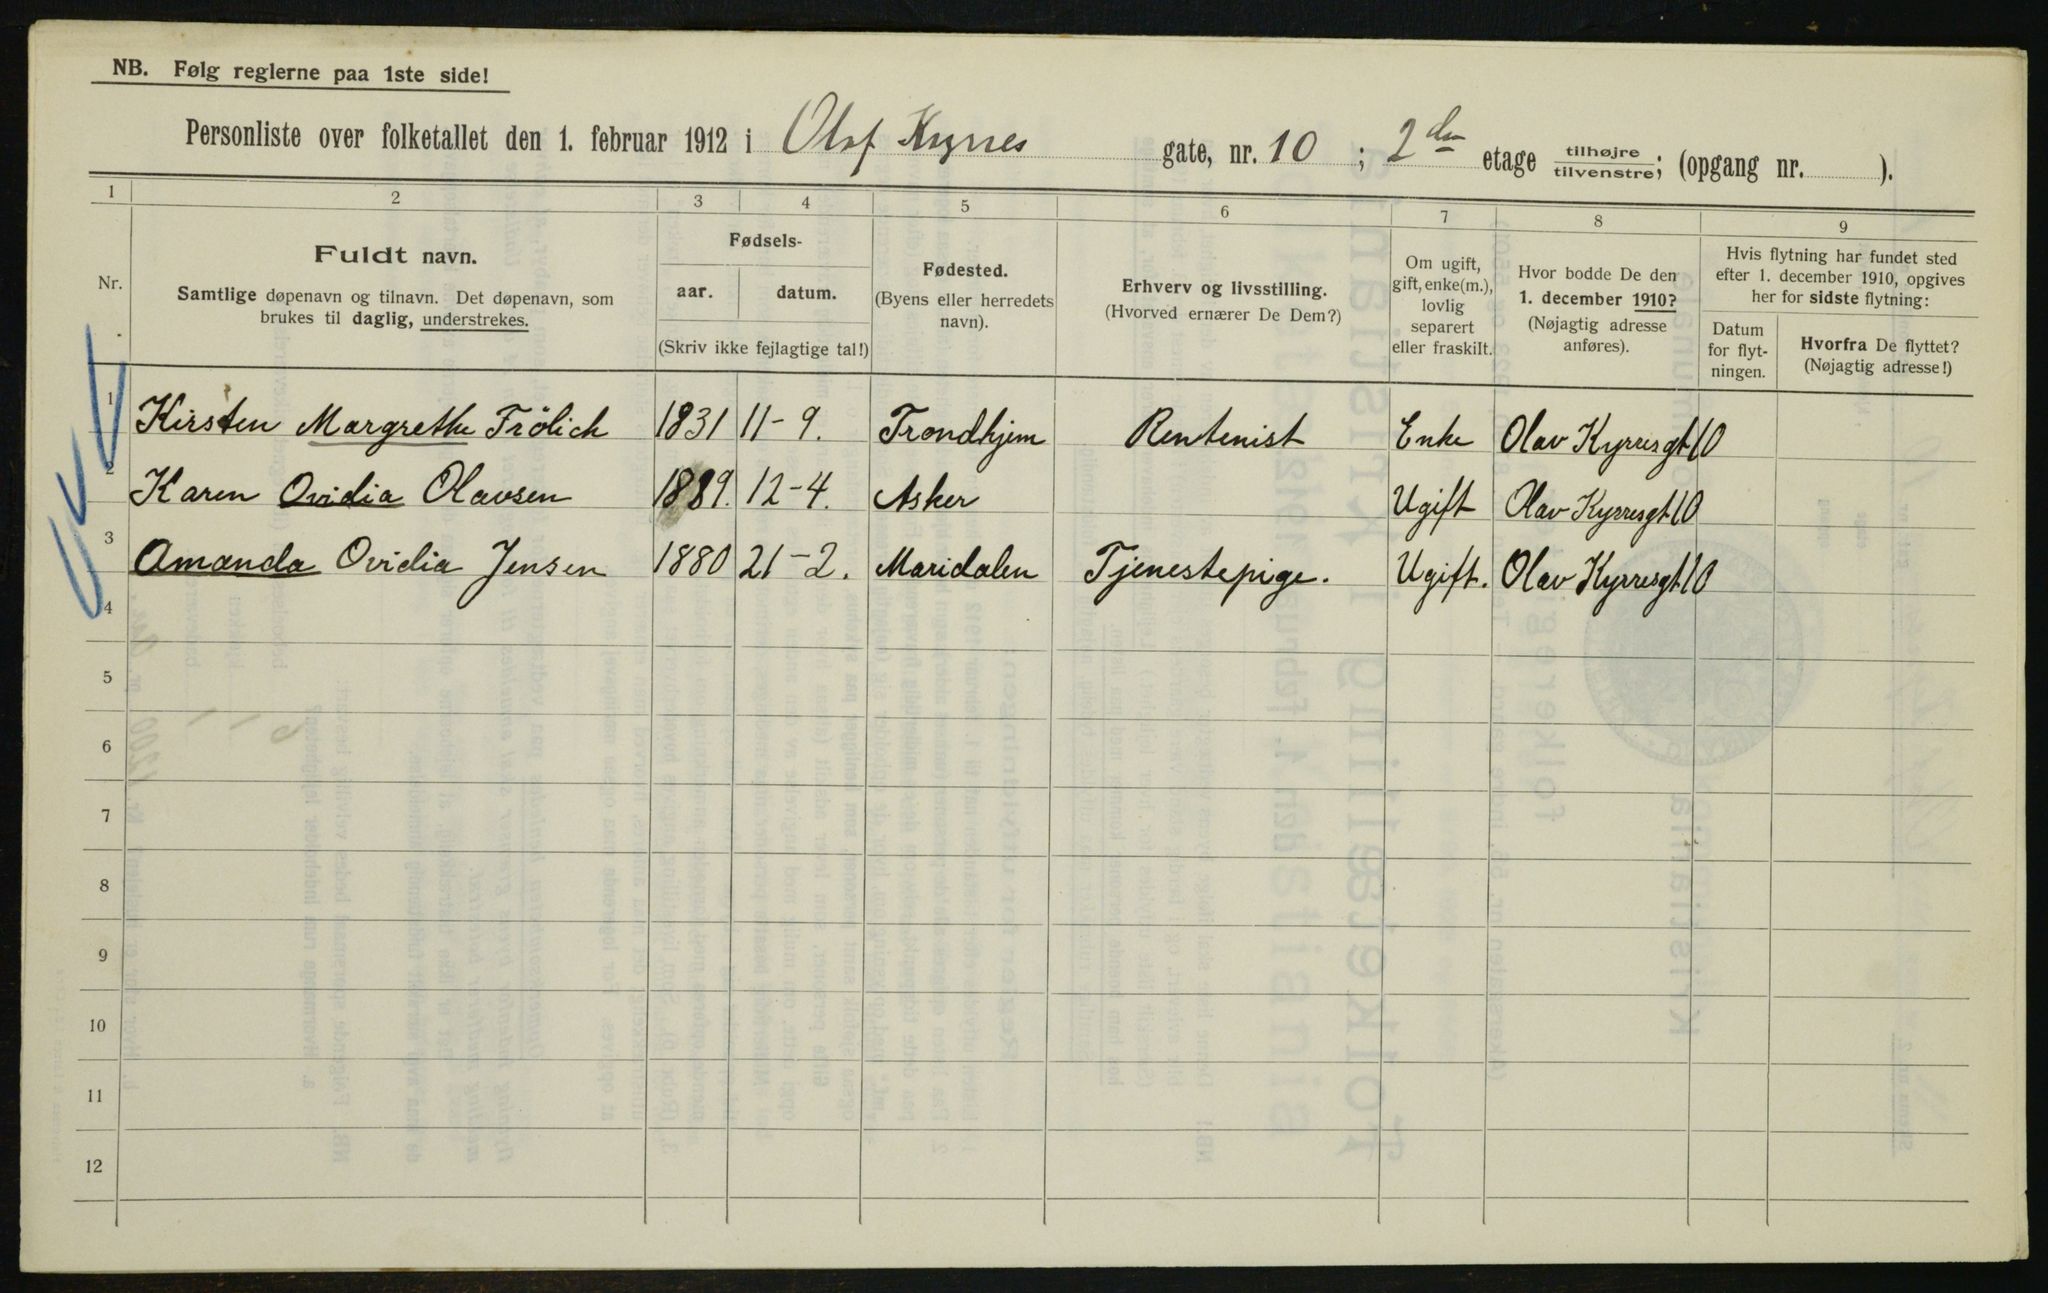 NB. Følg reglerne paa 1ste side!
Personliste over folketallet den 1. februar 1912 i Olaf Kyrres gate, nr. 10 ; 2den etage tilhøjre tilvenstre; (opgang nr. ).
1 2 3 4 5 6 7 8 9
Nr.
Fuldt navn.
Samtlige døpenavn og tilnavn. Det døpenavn, som
brukes til daglig, understrekes.
Fødsels-
aar. datum.
(Skriv ikke fejlagtige tal!)
Fødested.
(Byens eller herredets
navn).
Erhverv og livsstilling.
(Hvorved ernærer De Dem?)
Om ugift,
gift, enke(m.),
lovlig
separert
eller fraskilt.
Hvor bodde De den
1. december 1910?
(Nøjagtig adresse
anføres).
Hvis flytning har fundet sted
efter 1. december 1910, opgives
her for sidste flytning:
Datum
for flyt-
ningen.
Hvorfra De flyttet?
(Nøjagtig adresse!)
1 Kirsten Margrethe Frölich 1831 11-9. Trondhjem Rentenist Enke Olav Kyrresgt 10
2 Karen Ovidia Olavsen 1889. 12-4. Asker Ugift Olav Kyrresgt 10
3 Amanda Ovidia Jensen 1880 21-2. Maridalen Tjenestepige. Ugift. Olav Kyrresgt 10
4
5
6
7
8
9
10
11
12